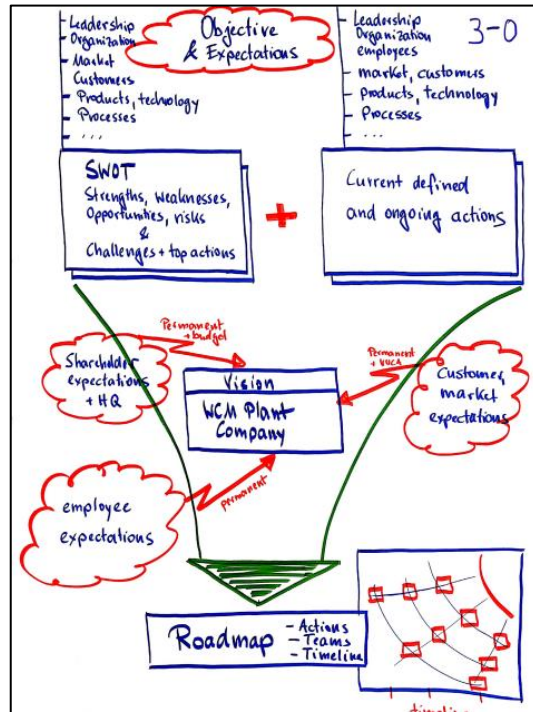 Leadership
Organization
Market
Customers
Products, technology
Processes
...
Objective
& Expectations
Leadership
Organization
employees
market, customers
products, technology
Processes
...
3-0
SWOT
Strengths, weaknesses,
Opportunities, risks
&
Challenges + top actions
+
Current defined
and ongoing actions
Permanent
+ budget
Shareholder
expectations
+ HQ
Permanent
+ VUCA
Customer,
market
expectations
Vision
WCM Plant
Company
employee
expectations
permanent
Roadmap
- Actions
- Teams
- Timeline